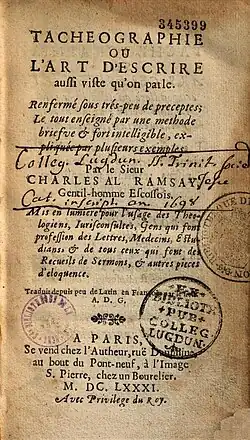 345399
TACHEOGRAPHIE
OU
L'ART D'ESCRIRE
aussi viste qu'on parle.
Renfermé sous très-peu de preceptes;
Le tout enseigné par une methode
briefve & fort intelligible, ex-
pliquée par plusieurs exemples.
Colleg. Lugdun. SS. Trinit.
Par le Sieur
CHARLES AL. RAMSAY
Gentil-homme Escossois.
Cat. inscript. an. 1698
Mis en lumiere pour l'usage des Theo-
logiens, Jurisconsultes, Gens qui font
profession des Lettres, Medecins, Estu-
dians, & de tous eux qui font des
Recueils de Sermons, & autres pieces
d'eloquence.
Traduit depuis peu de Latin en François
A. D. G.
EX
BIBLIOTH
PUB
COLLEG
LUGDUN.
A PARIS,
Se vend chez l'Autheur, ruë Dauphine
au bout du Pont-neuf, à l'Image
S. Pierre, chez un Bourelier.
M. DC. LXXXI.
Avec Privilege du Roy.